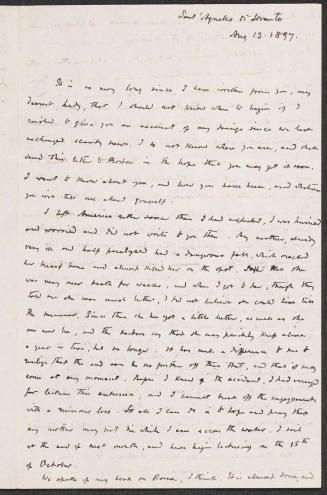 Sant' Agnello di Sorrento
Aug 13. 1897.
It is so very long since I have written from you, my
dearest lady, that I should not know where to begin if I
wished to give you an account of my doings since we last
exchanged scanty news. I do not know where you are, and shall
send this letter to Boston in the hope that you may get it soon.
I want to know about you, and how you have been, and whether
you will tell me about yourself.
I left America rather sooner than I had expected, I was hurried
and worried and did not write to you then. My mother, already
very ill and half paralysed had a dangerous fall, which cracked
her breast bone and almost killed her on the spot. She
was very near death for weeks, and when I got to her, though they
told me she was much better, I did not believe she could live till
the summer. Since then she has got a little better, as well as she
can ever be, and the doctors say that she may possibly keep alive
a year or two, but no longer. It has made a difference to me to
realize that the end can be no further off than that, and that it may
come at any moment. Before I knew of the accident, I had arranged
for lectures this autumn, and I cannot break off the engagements
with a ruinous loss. So all I can do is to hope and pray that
my mother may not die while I am across the water. I sail
at the end of next month, and begin lecturing on the 15th
of October.
We spoke of my book on Rome, I think. It is almost done, and